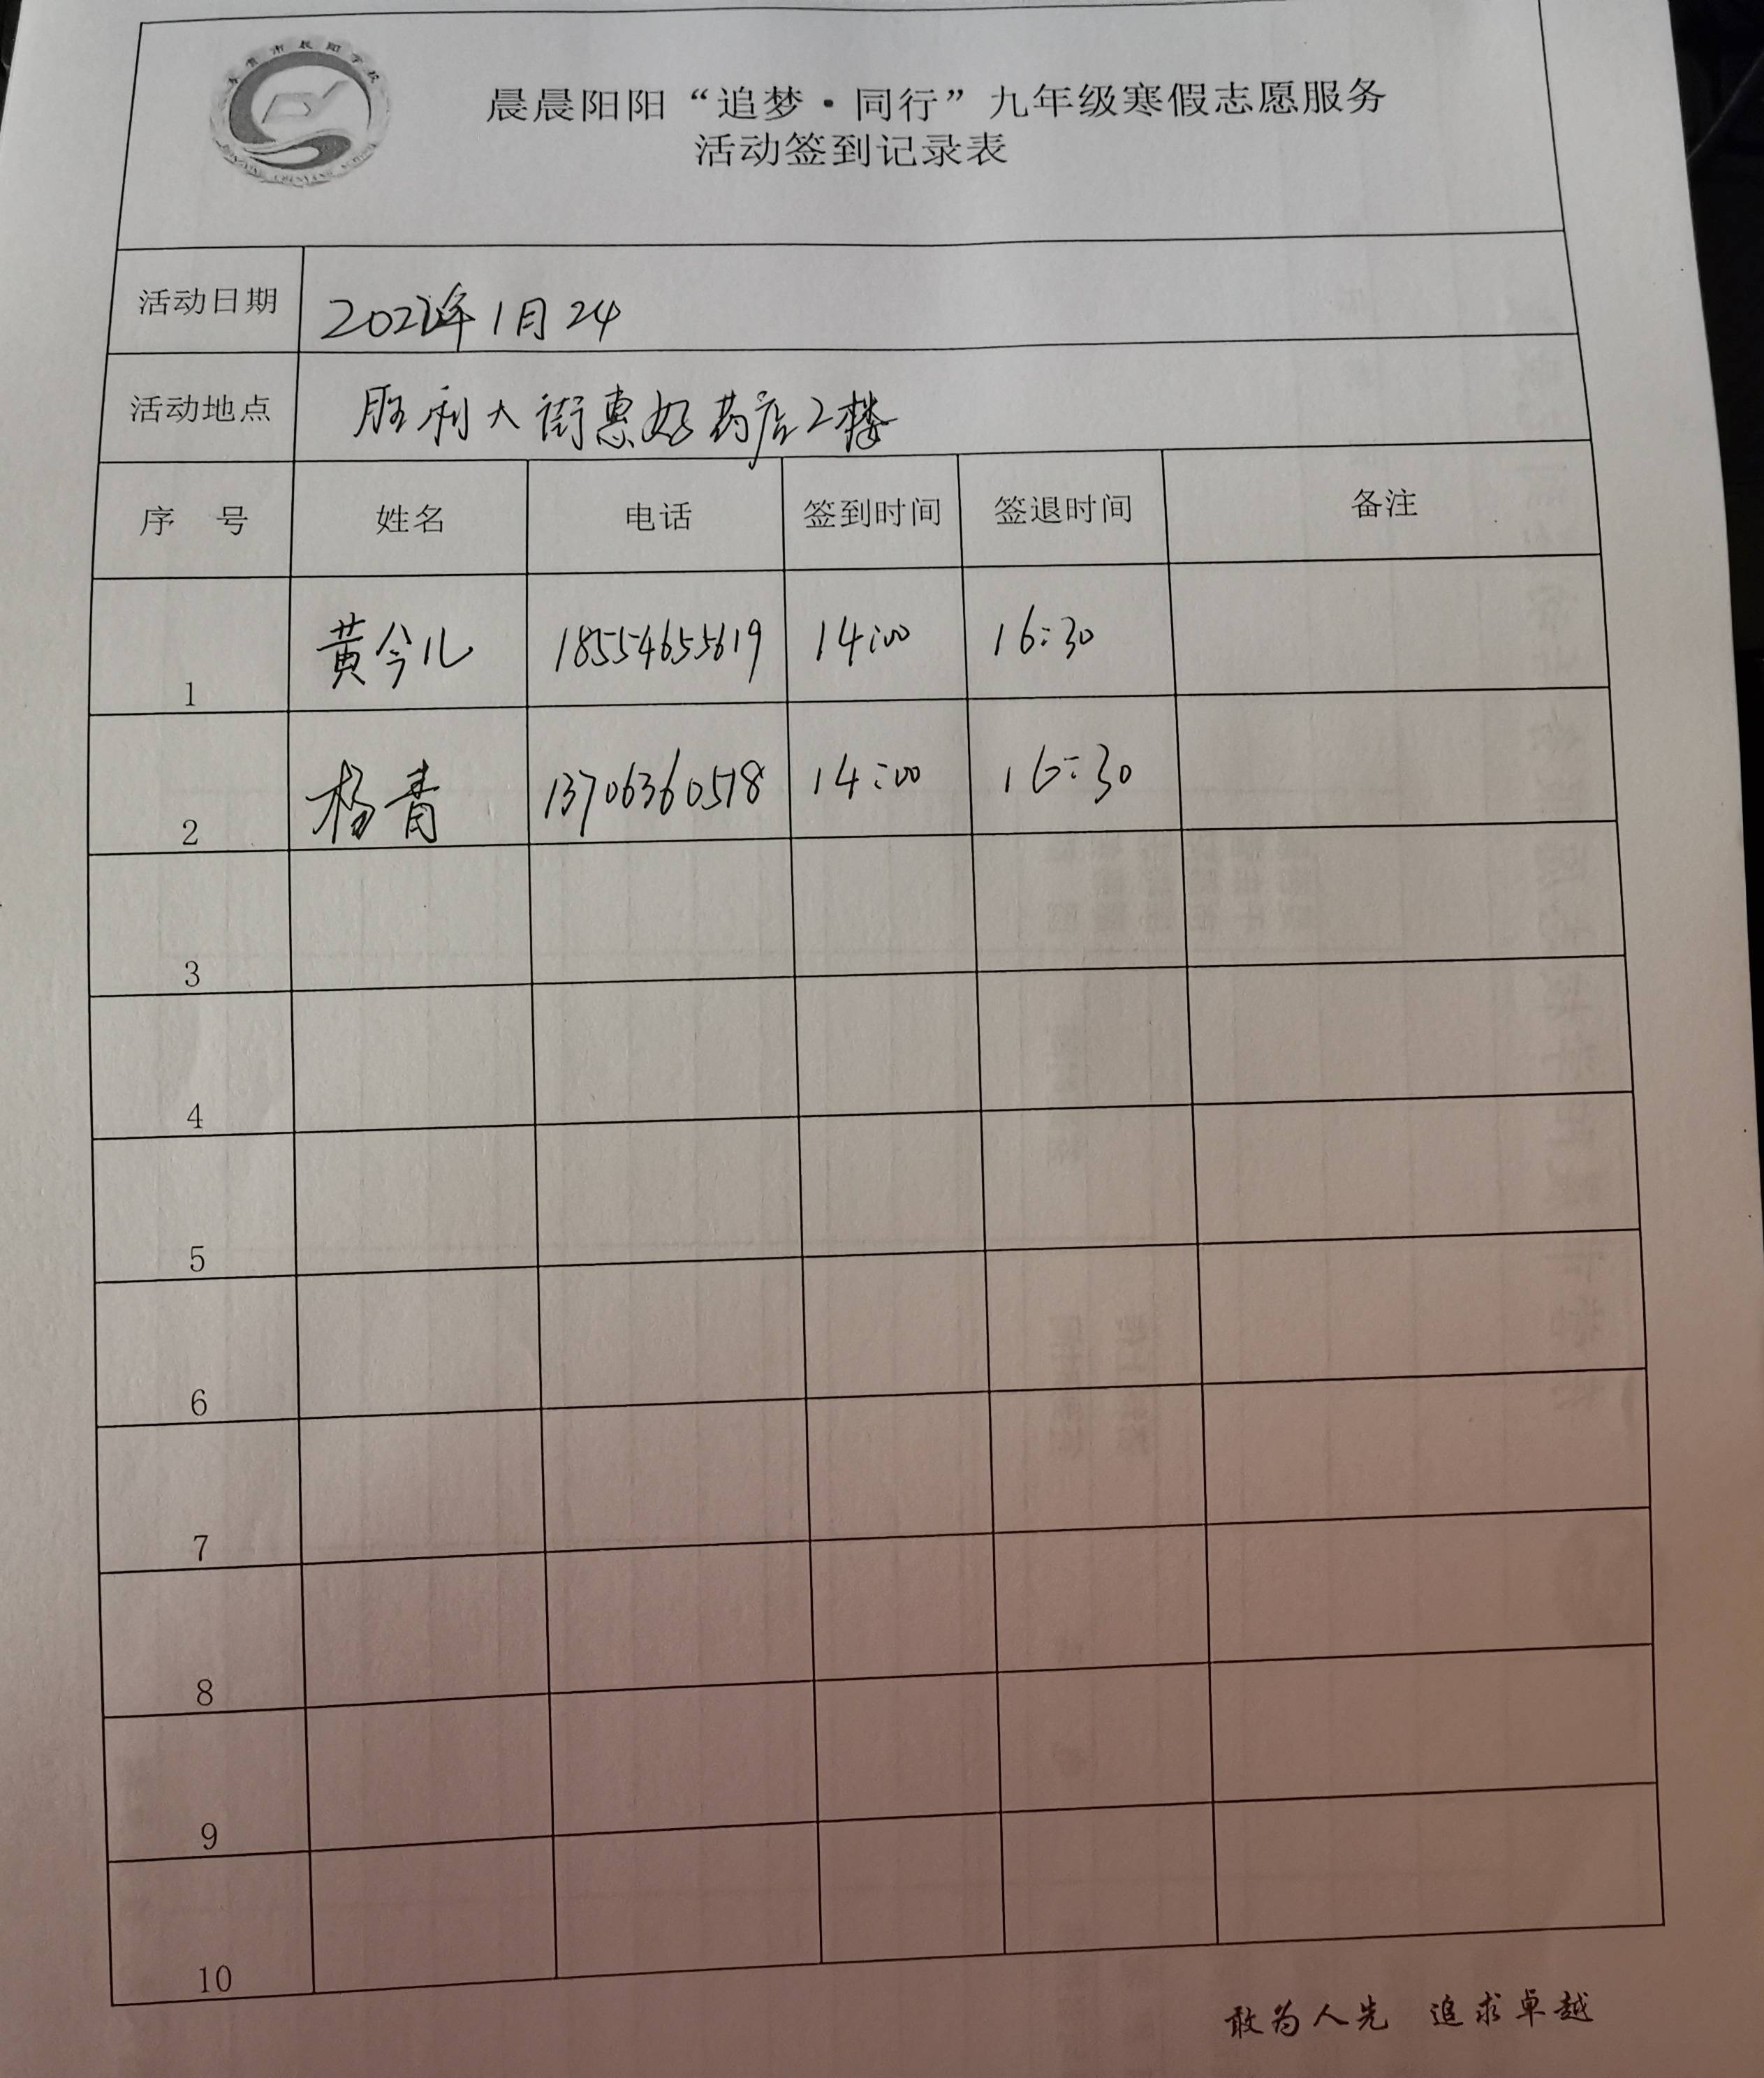 晨晨阳阳“追梦·同行”九年级寒假志愿服务
活动签到记录表
活动日期 2022年1月24
活动地点 胜利大街惠好药店2楼
序 号 姓名 电话 签到时间 签退时间 备注
1 黄今儿 18554655619 14:00 16:30
2 杨青 13706360518 14:00 16:30
3
4
5
6
7
8
9
10
敢为人先 追求卓越